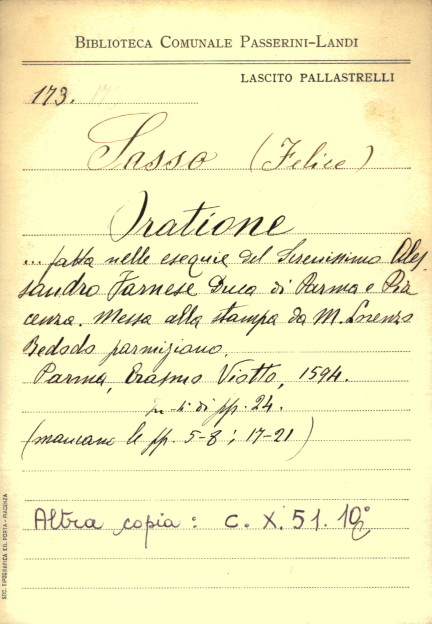 BIBLIOTECA COMUNALE PASSERINI-LANDI
LASCITO PALLASTRELLI
173.
Sasso (Felice)
Oratione
... fatta nelle esequie del Serenissimo Ales
sandro Farnese Duca di Parma e Pia
cenza. Messa alla stampa da M. Lorenzo
Bedodo parmigiano.
Parma, Erasmo Viotto, 1594.
in-4° di pp. 24.
(mancano le pp. 5-8; 17-21)
Altra copia: C. X. 51. 10
SOC. TIPOGRAFICA ED. PORTA - PIACENZA